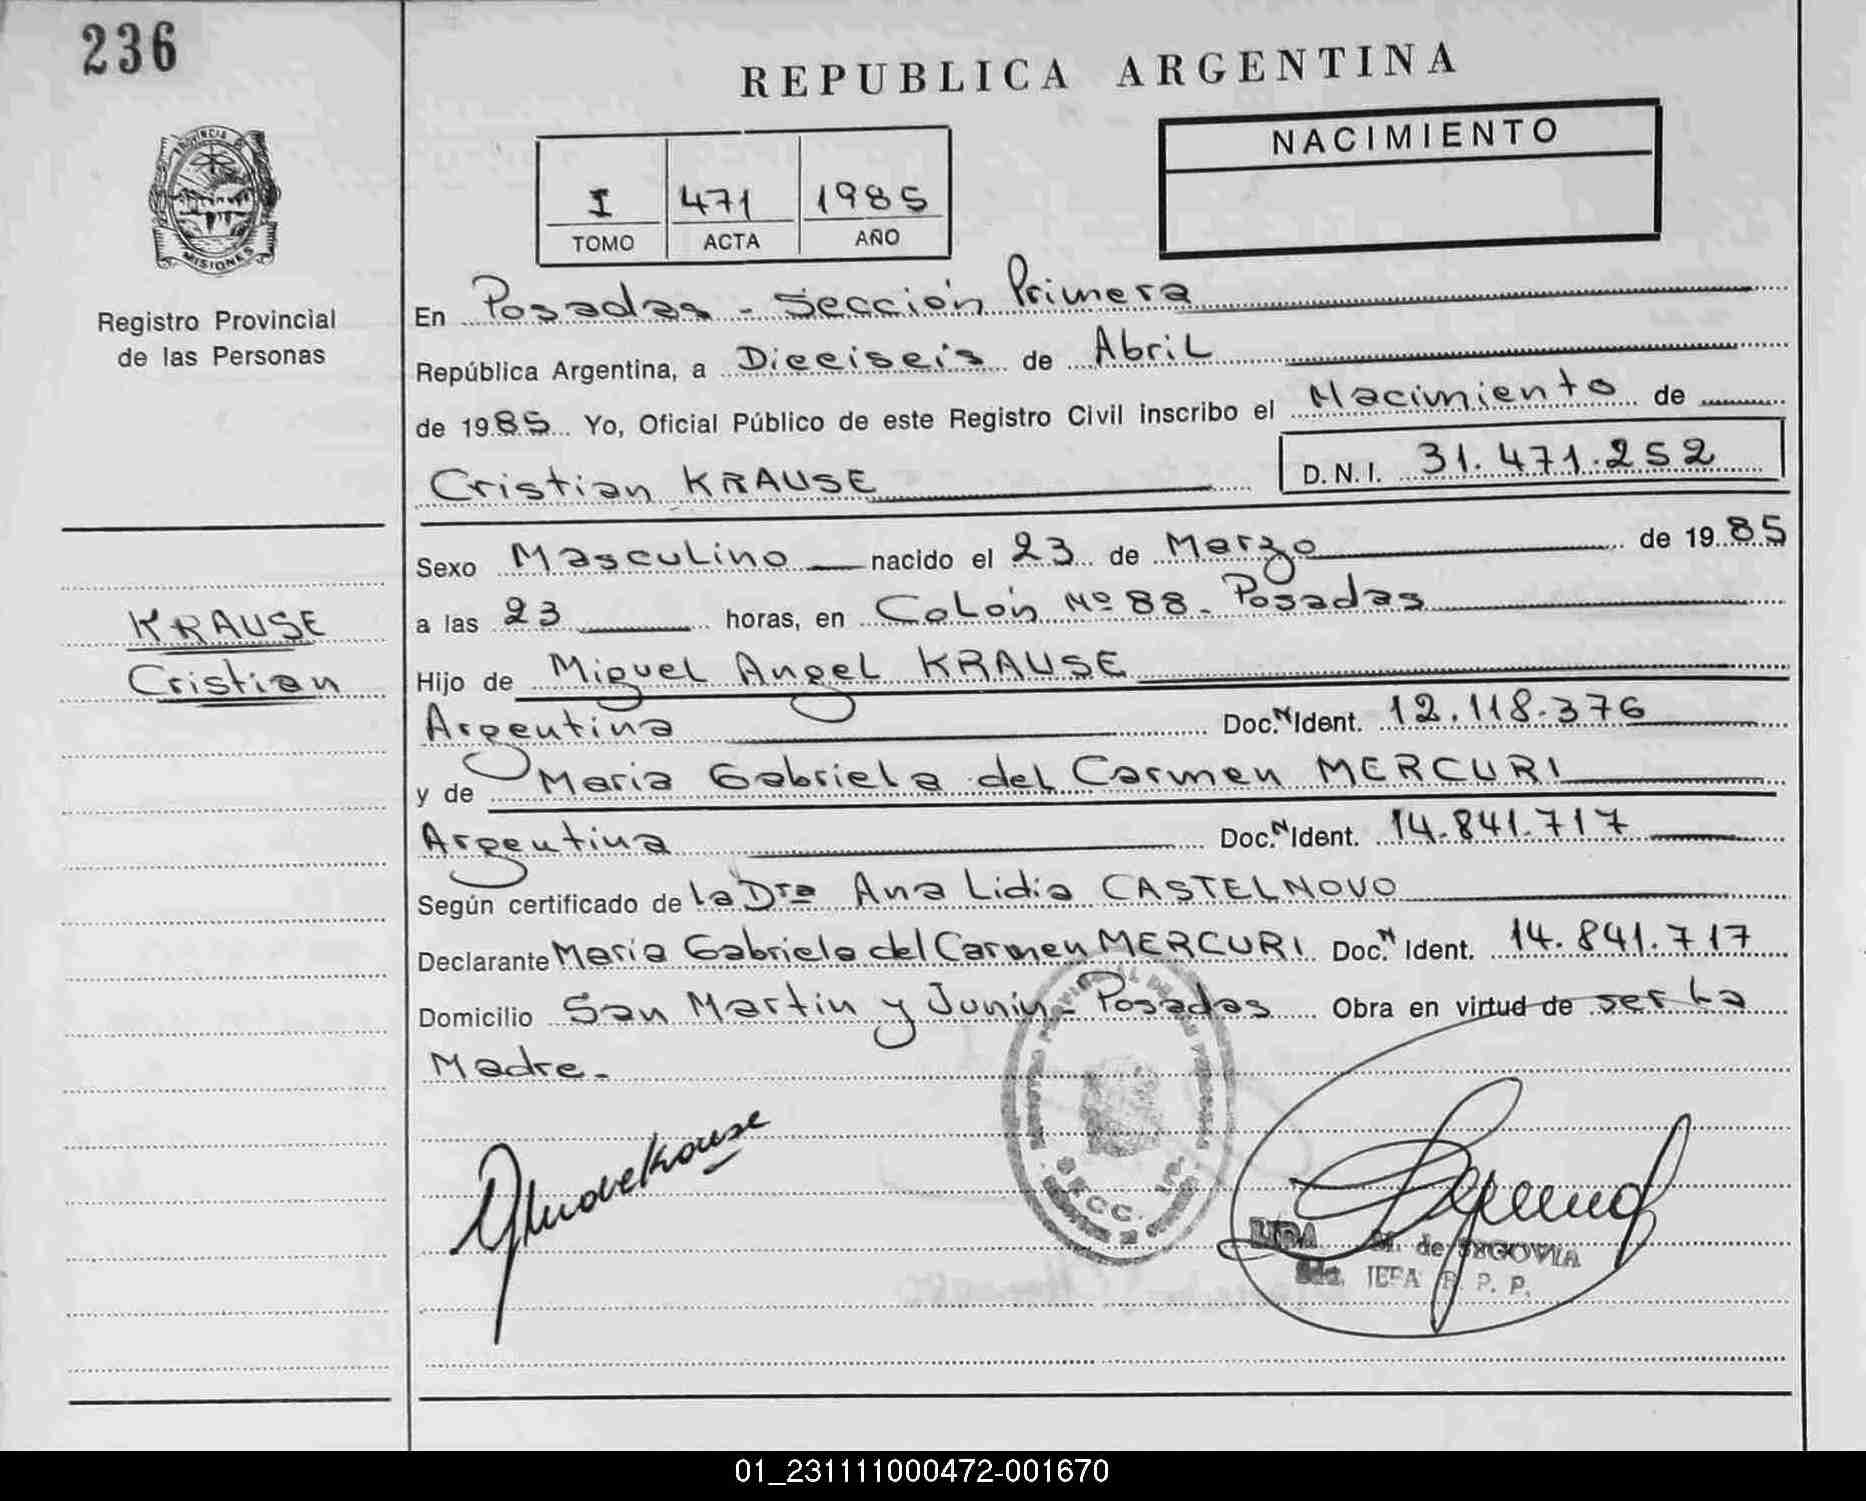 236
REPUBLICA ARGENTINA
NACIMIENTO
I 471 1985
TOMO ACTA AÑO
PROVINCIA DE
MISIONES
Registro Provincial
de las Personas
En Posadas - Sección Primera
República Argentina, a Dieciseis de Abril
de 1985 Yo, Oficial Público de este Registro Civil inscribo el Nacimiento de
Cristian KRAUSE D.N.I. 31.471.252
Sexo Masculino nacido el 23 de Marzo de 1985
a las 23 horas, en Colón Nº 88 - Posadas
KRAUSE
Cristian
Hijo de Miguel Angel KRAUSE
Argentina Doc. N Ident. 12.118.376
y de Maria Gabriela del Carmen MERCURI
Argentina Doc. N Ident. 14.841.717
Según certificado de la Dra Ana Lidia CASTELNOVO
Declarante Maria Gabriela del Carmen MERCURI Doc. N Ident. 14.841.717
Domicilio San Martin y Junín - Posadas Obra en virtud de ser la
Madre.-
SECC. 1ª
M. de SEGOVIA
2da. JEFA R. P. P.
01_231111000472-001670